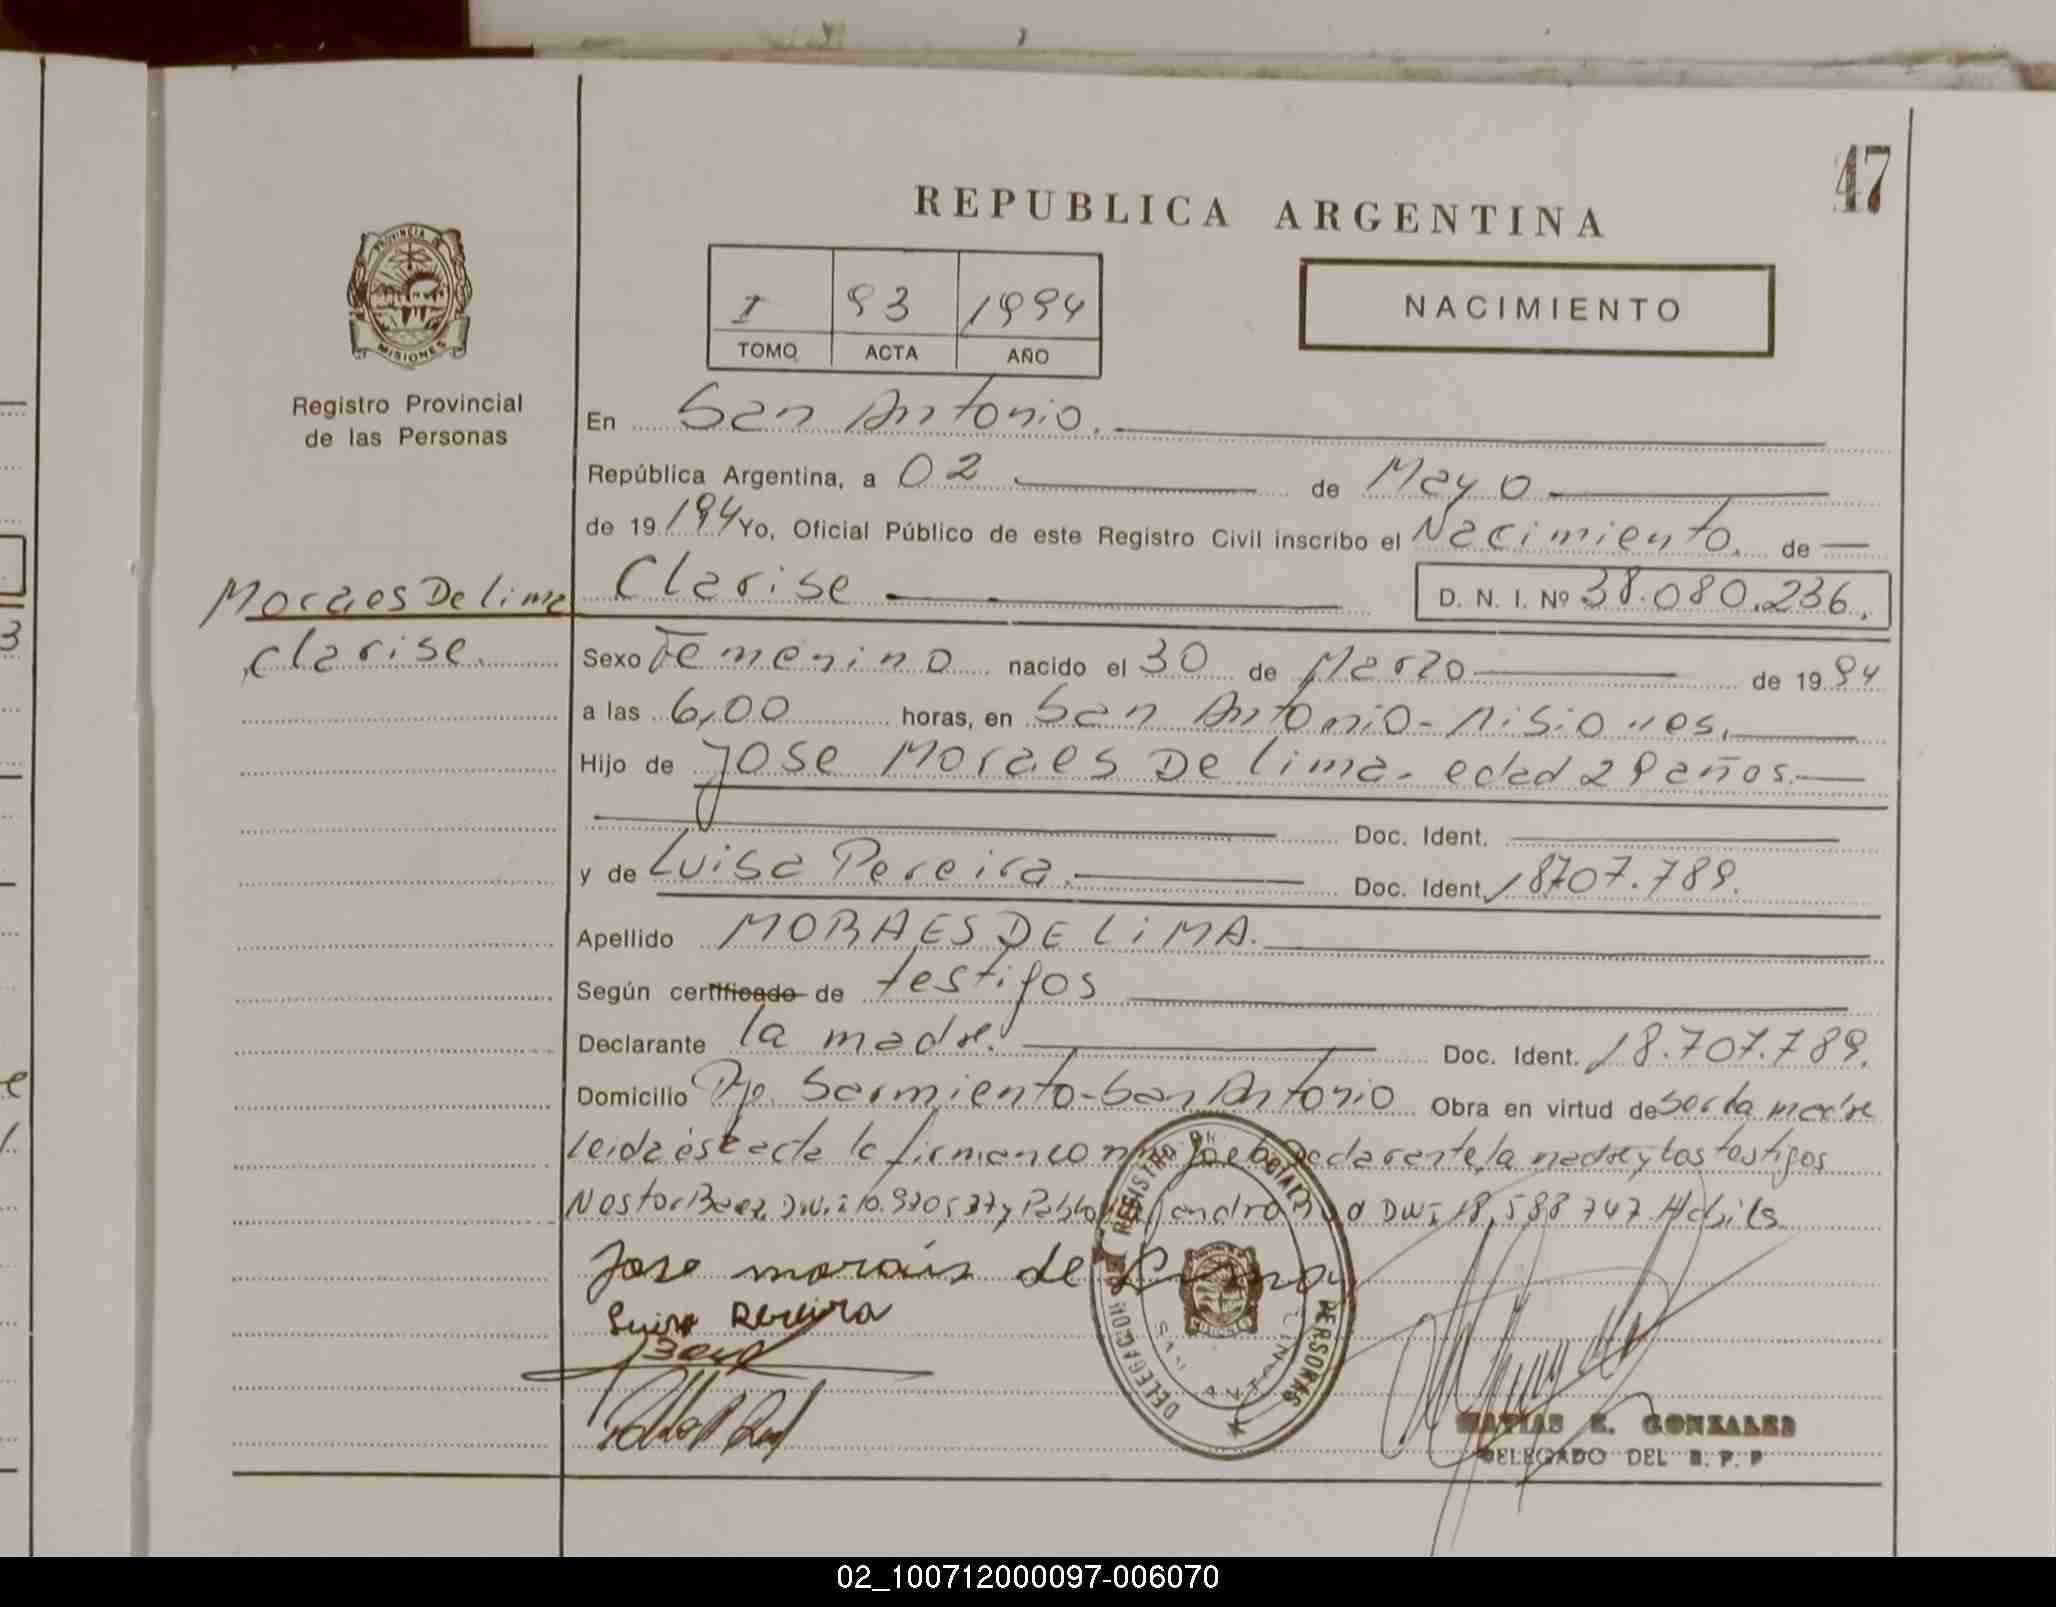 47
REPUBLICA ARGENTINA
PROVINCIA DE
MISIONES
I 93 1994
TOMO ACTA AÑO
NACIMIENTO
Registro Provincial
de las Personas
En San Antonio.
República Argentina, a 02 de Mayo
de 19 194 Yo, Oficial Público de este Registro Civil inscribo el Nacimiento de
Moraes De lima
clarise.
Clarise D. N. I. Nº 38.080.236.
Sexo Femenino nacido el 30 de Marzo de 1994
a las 6,00 horas, en San Antonio - Misiones.
Hijo de Jose Moraes De lima. edad 29 años.
Doc. Ident.
y de Luisa Pereira. Doc. Ident. 18707.789.
Apellido MORAES DE LiMA.
Según certificado de testigos
Declarante la madre. Doc. Ident. 18.707.789.
Domicilio Pje. Sarmiento - San Antonio Obra en virtud de ser la madre
Leida ésta acta la firman conmigo el Declarante, la madre y los testigos
Nestor Baez, y Pablo DNI 18,588 747. Habiles
Jose morais de Lima
Luisa Pereira
DELEGACION REGISTRO PERSONAS
SAN ANTONIO
MATIAS E. GONZALES
DELEGADO DEL R. P. P
02_100712000097-006070